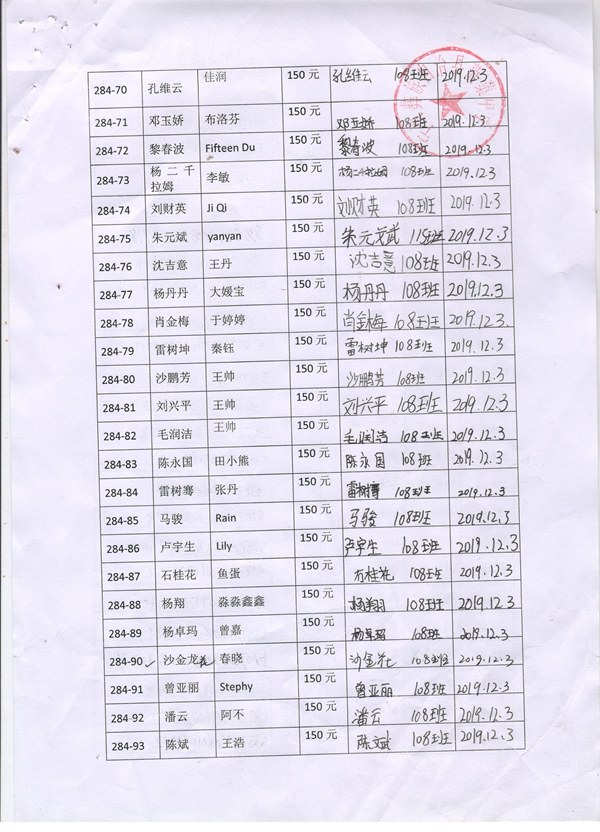 284-70 孔维云 佳润 150 元 孔维云 108班 2019.12.3
284-71 邓玉娇 布洛芬 150 元 邓玉娇 108班 2019.12.3
284-72 黎春波 Fifteen Du 150 元 黎春波 108班 2019.12.3
284-73 杨二千 李敏 150 元 108班 2019.12.3
拉姆
284-74 刘财英 Ji Qi 150 元 刘财英 108班 2019.12.3
284-75 朱元斌 yanyan 150 元 朱元斌 115班 2019.12.3
284-76 沈吉意 王丹 150 元 沈吉意 108班 2019.12.3
284-77 杨丹丹 大媛宝 150 元 杨丹丹 108班 2019.12.3
284-78 肖金梅 于婷婷 150 元 肖金梅 108班 2019.12.3.
284-79 雷树坤 秦钰 150 元 雷树坤 108班 2019.12.3
284-80 沙鹏芳 王帅 150 元 沙鹏芳 108班 2019.12.3
284-81 刘兴平 王帅 150 元 刘兴平 108班 2019.12.3
284-82 毛润洁 王帅 150 元 毛润洁 108班 2019.12.3
284-83 陈永国 田小熊 150 元 陈永国 108班 2019.12.3
284-84 雷树骞 张丹 150 元 雷树骞 108班 2019.12.3
284-85 马骏 Rain 150 元 马骏 108班 2019.12.3
284-86 卢宇生 Lily 150 元 卢宇生 108班 2019.12.3
284-87 石桂花 鱼蛋 150 元 石桂花 108班 2019.12.3
284-88 杨翔 淼淼鑫鑫 150 元 杨翔 108班 2019.12.3
284-89 杨卓玛 曾嘉 150 元 杨卓玛 108班 2019.12.3
284-90 沙金龙花 春晓 150 元 沙金花 108班 2019.12.3
284-91 曾亚丽 Stephy 150 元 曾亚丽 108班 2019.12.3
284-92 潘云 阿不 150 元 潘云 108班 2019.12.3
284-93 陈斌 王浩 150 元 陈斌 108班 2019.12.3